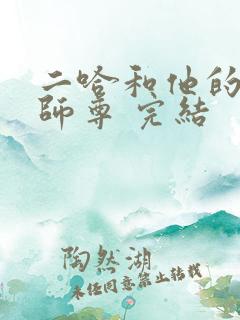 二哈和他的
師尊 完結
陶然湖
未经同意禁止转载